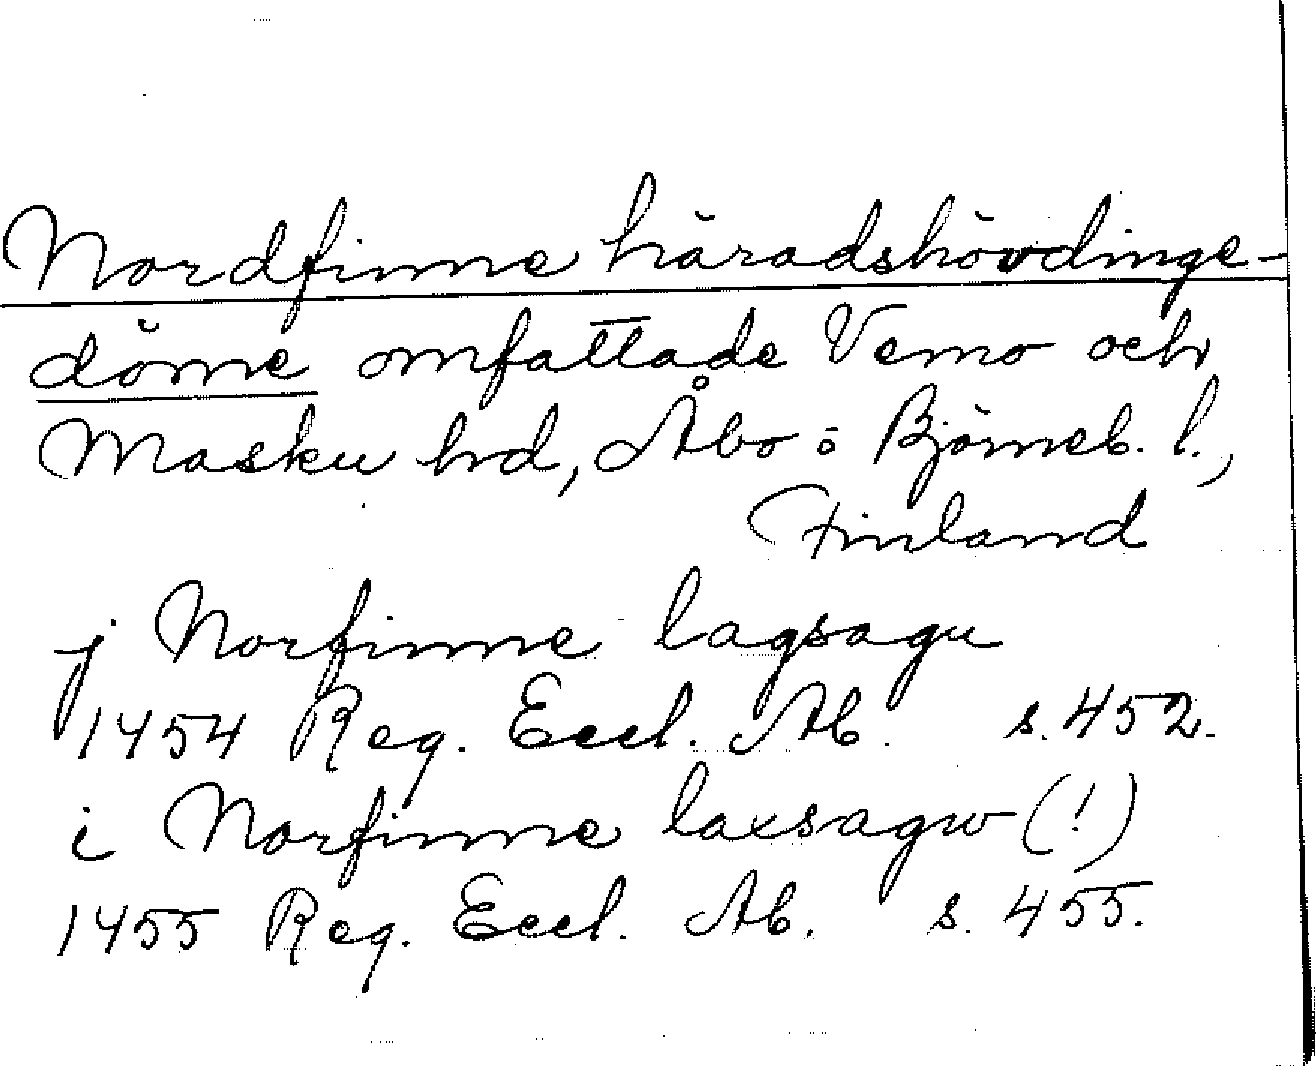 Nordfinne häradshövdinge-
döme omfattade Vemo och
Masku hd, Åbo o Björneb. l.,
Finland
j Norfinne lagsagu
1454 Reg. Eccl. Ab. s. 452.
i Norfinne laxsagw (!)
1455 Reg. Eccl. Ab. s. 455.